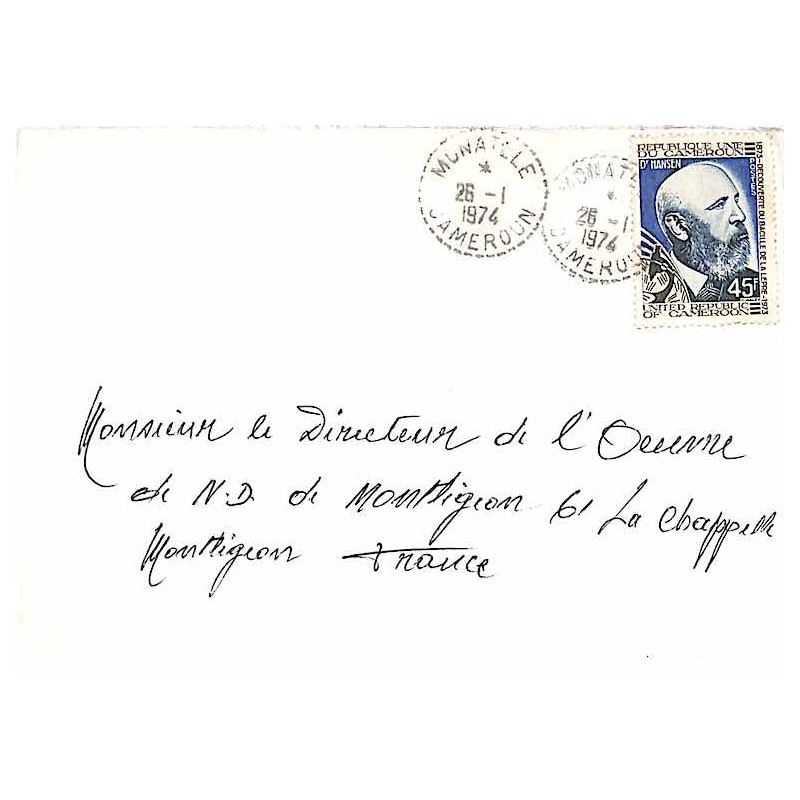 MONATELE
*
26 - 1
1974
CAMEROUN
MONATEL
*
26 - 1
1974
CAMEROUN
REPUBLIQUE UNIE
DU CAMEROUN
Dr HANSEN
POSTES
1873-DECOUVERTE DU BACILLE DE LA LEPRE-1973
45F
UNITED REPUBLIC
OF CAMEROON
Monsieur le Directeur de l'Oeuvre
de N.D. de Montligeon 61 La Chappelle
Montligeon France